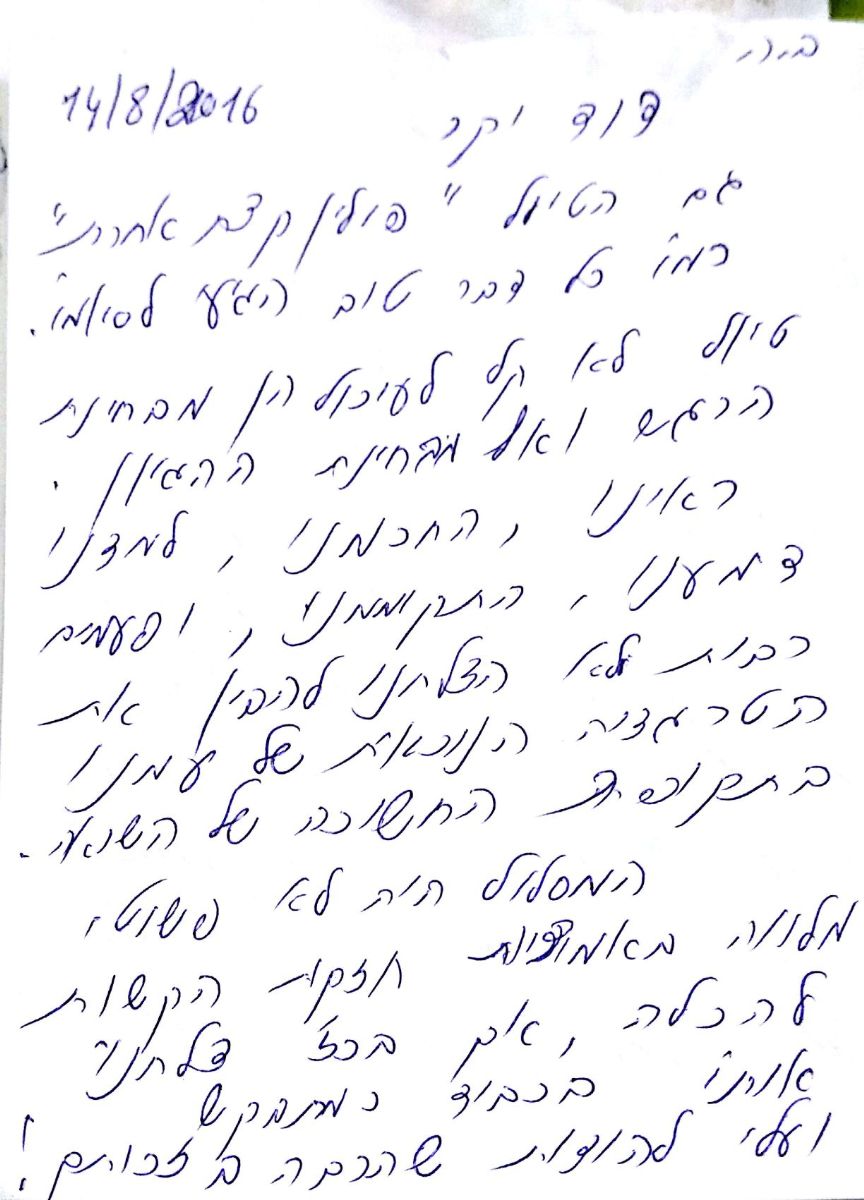 14/8/2016
דוד יקר
גם הטיול "פולין קצת אחרת"
כמו כל דבר טוב הגיע לסיומו.
טיול לא קל לעיכול הן מבחינת
הרגש ואף מבחינת ההגיון.
ראינו, החכמנו, למדנו
דמענו, התקוממנו, ופעמים
רבות לא הצלחנו להבין את
הטרגדיה הנוראית של עמנו
בתקופת החשוכה של השואה.
המסלול היה לא פשוט,
מלווה באמוציות חזקות הקשות
להכלה, אם בכל צלחנו
אותו בכבוד כמתבקש
ועלי להודות שהרבה בזכותם!